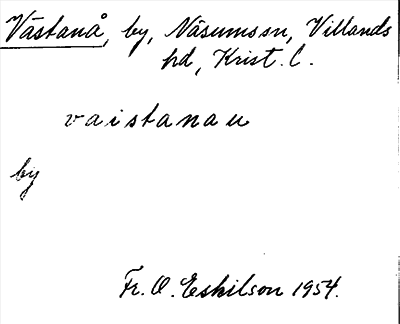 Västanå, by, Näsumssn, Villands
hd, Krist. l.
vaistanau
by
Fr. O. Eskilson 1954.